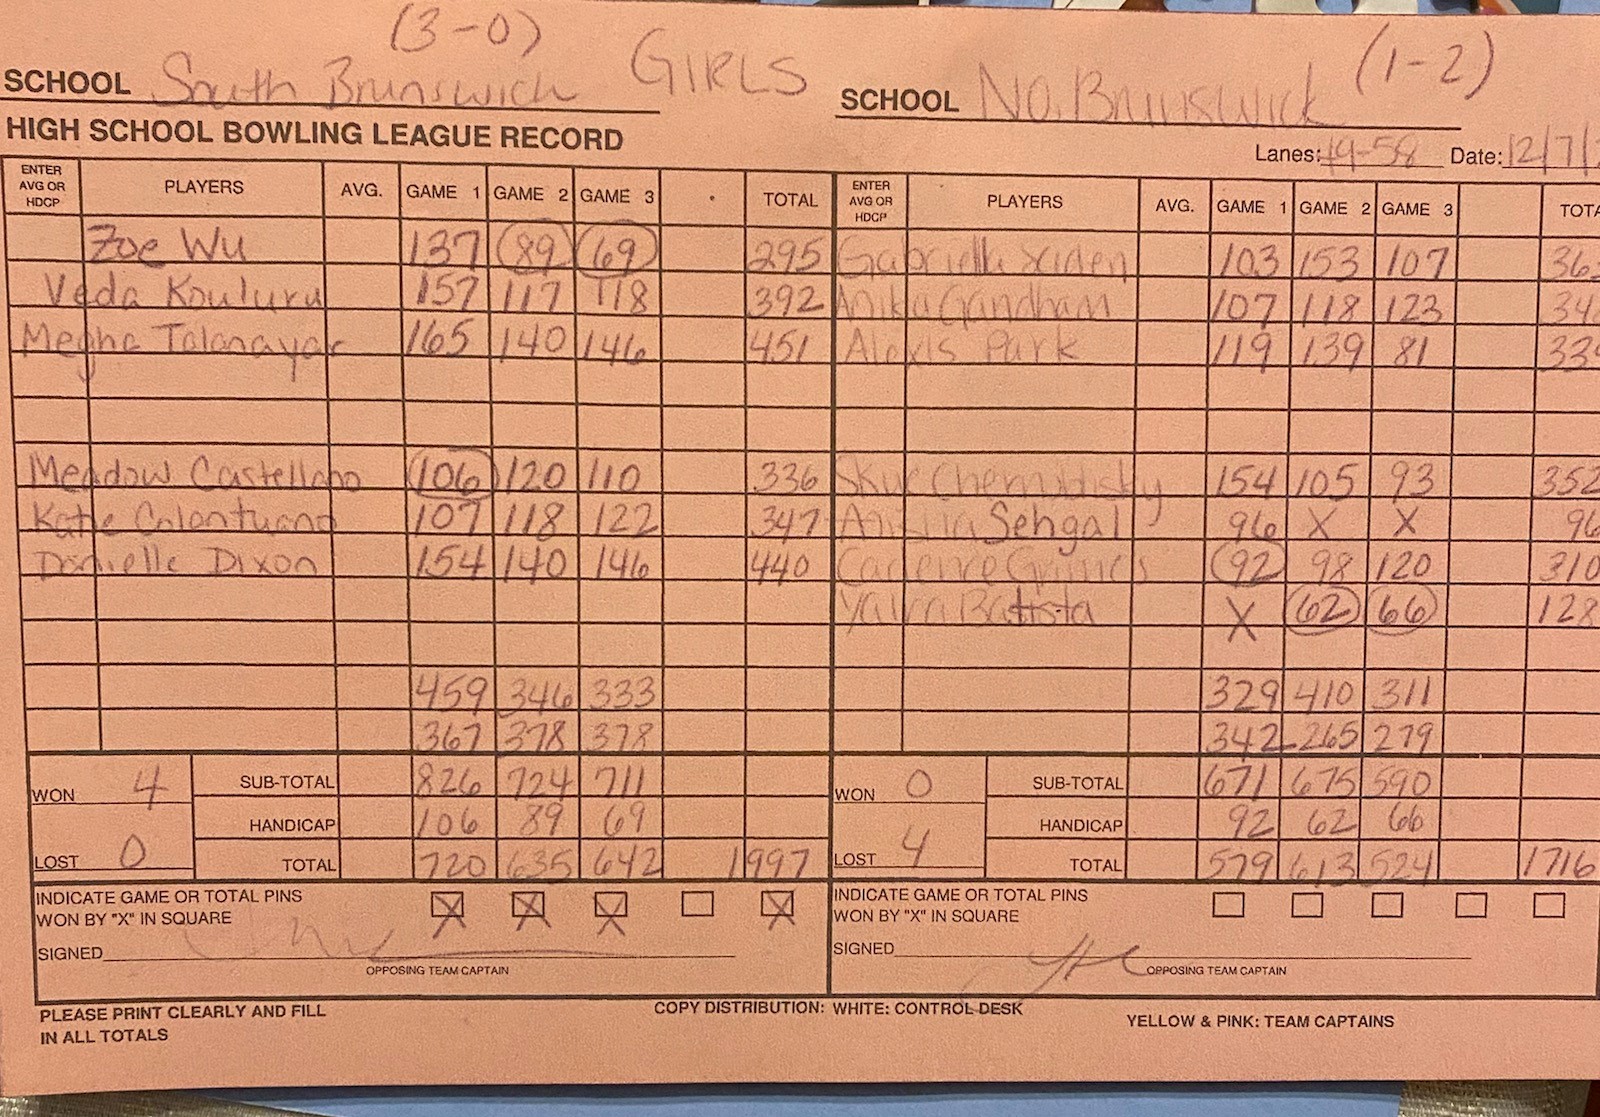 (3-0) (1-2)
SCHOOL South Brunswick GIRLS SCHOOL No. Brunswick
HIGH SCHOOL BOWLING LEAGUE RECORD
Lanes: 49-58 Date: 12/7/
ENTER AVG OR HDCP PLAYERS AVG. GAME 1 GAME 2 GAME 3 TOTAL ENTER AVG OR HDCP PLAYERS AVG. GAME 1 GAME 2 GAME 3 TOTA
Zoe Wu 137 89 69 295 Gabriella 103 153 107 36
Veda Kouluru 157 117 118 392 Anika Gandham 107 118 123 34
Megha Talanayar 165 140 146 451 Alexis Park 119 139 81 33
Meadow Castellano 106 120 110 336 Skye 154 105 93 352
Katie Colantuano 107 118 122 347 Sehgal 96 X X 96
Danielle Dixon 154 140 146 440 Cadence Grimes 92 98 120 310
Battista X 62 66 128
459 346 333 329 410 311
367 378 378 342 265 279
WON 4 SUB-TOTAL 826 724 711 WON 0 SUB-TOTAL 671 675 590
HANDICAP 106 89 69 HANDICAP 92 62 66
LOST 0 TOTAL 720 635 642 1997 LOST 4 TOTAL 579 613 524 1716
INDICATE GAME OR TOTAL PINS X X X X INDICATE GAME OR TOTAL PINS
WON BY "X" IN SQUARE WON BY "X" IN SQUARE
SIGNED SIGNED
OPPOSING TEAM CAPTAIN OPPOSING TEAM CAPTAIN
PLEASE PRINT CLEARLY AND FILL COPY DISTRIBUTION: WHITE: CONTROL DESK
IN ALL TOTALS YELLOW & PINK: TEAM CAPTAINS